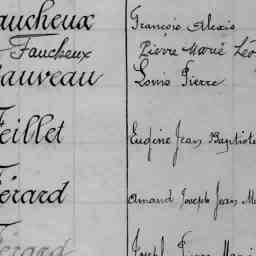 aucheux François Alexis
Faucheux Pierre Marie Léo
auveau Louis Pierre
Feillet Eugène Jean Baptiste
Férard Amand Joseph Jean M
Férard Joseph Pierre Marie